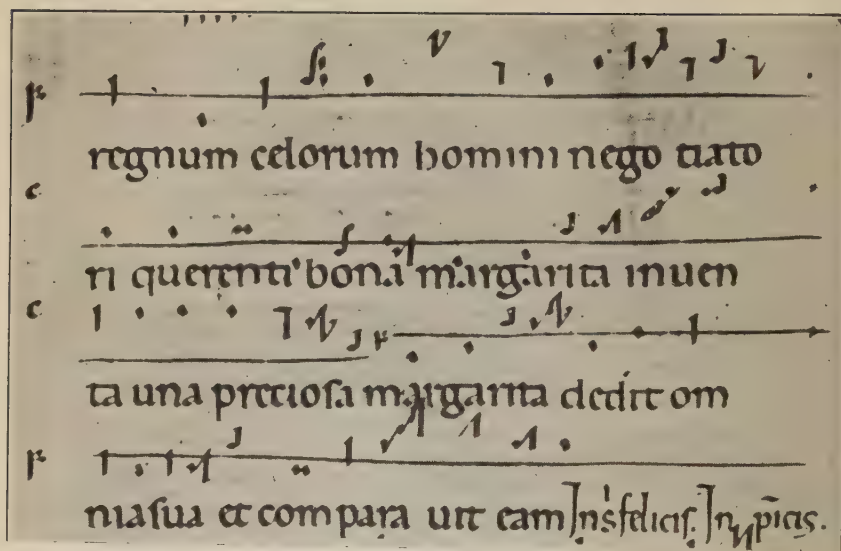 regnum celorum homini nego tiato
ri querenti bona margarita inuen
ta una preciosa margarita dedit om
nia sua et compara uit eam In s felicis.